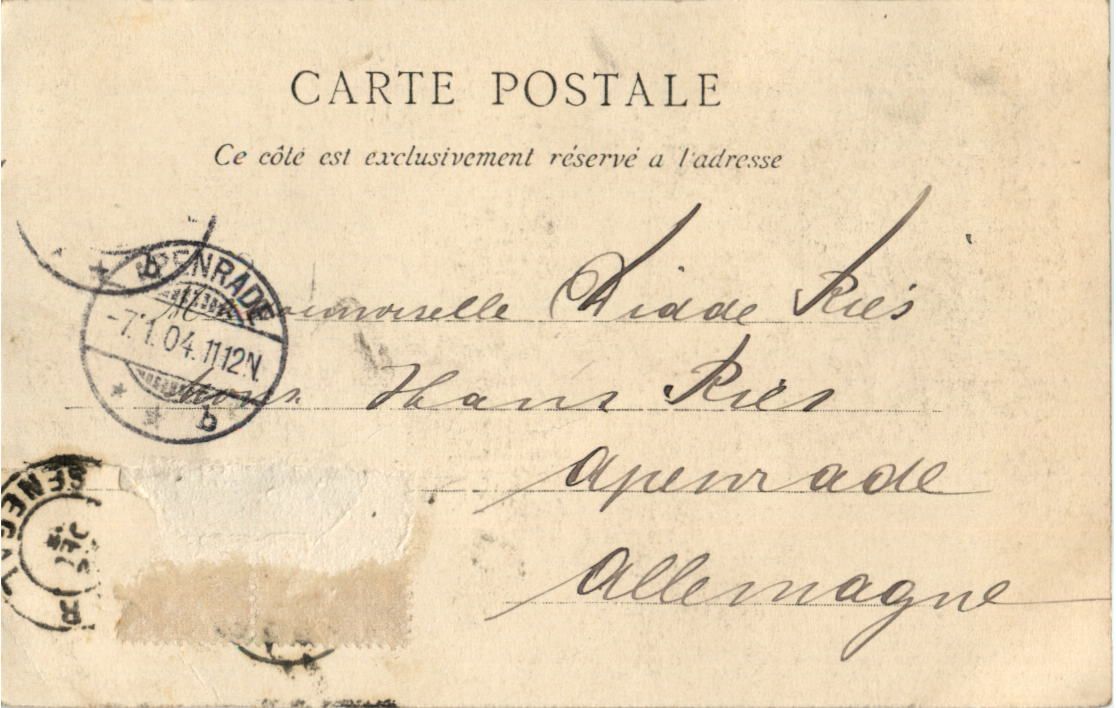 CARTE POSTALE
Ce côté est exclusivement réservé a l'adresse
APENRADE
-7.1.04.1112N.
* * b
Didde Ries
Hans Ries
Apenrade
Allemagne
SENEGAL